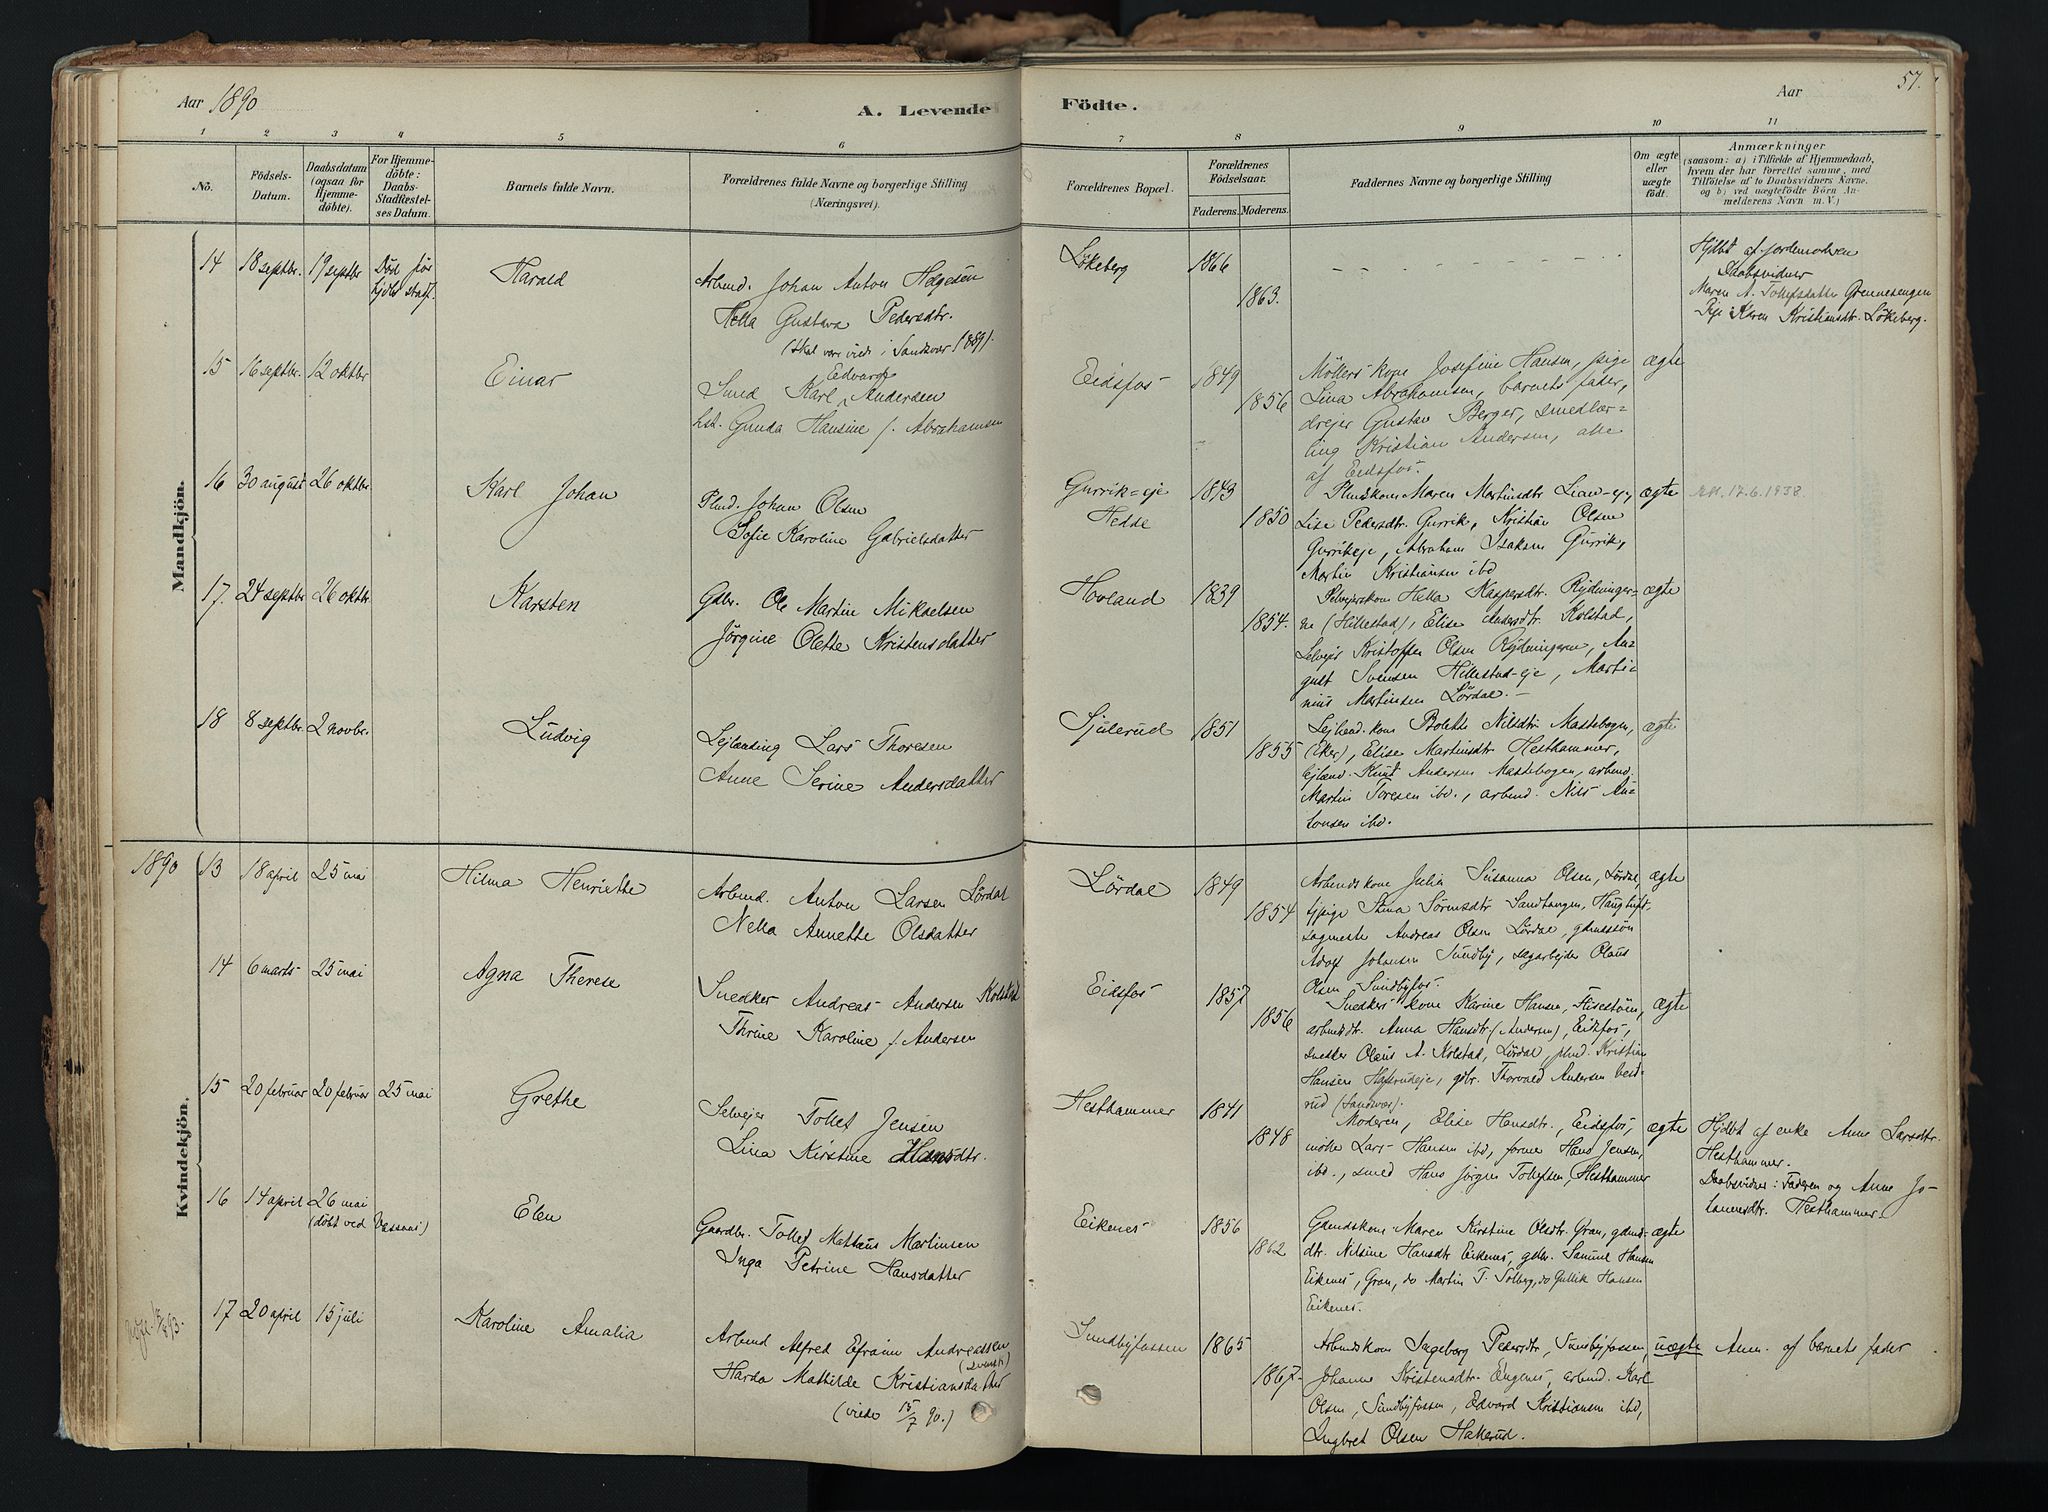 Aar 1890
A. Levende Födte.
Aar
57.
1 2 3 4 5 6 7 8 9 10 11
No.
Födsels-
Datum.
Daabsdatum
(ogsaa for
Hjemme-
döbte).
For Hjemme-
döbte:
Daabs-
Stadfæstel-
ses Datum.
Barnets fulde Navn.
Forældrenes fulde Navne og borgerlige Stilling
(Næringsvei).
Forældrenes Bopæl.
Forældrenes
Födselsaar.
Faderens. Moderens.
Faddernes Navne og borgerlige Stilling
Om ægte
eller
uægte
födt.
Anmærkninger
(saasom: a) i Tilfælde af Hjemmedaab,
hvem der har forrettet samme, med
Tilföielse af to Daabsvidners Navne,
og b) ved uægtefödte Börn An-
melderens Navn m. V.)
Mandkjön.
14 18 septbr. 19 septbr Död før
hjdb. stadf.
Harald
Arbmd. Johan Anton Helgesen
Hella Gustava Pedersdtr.
(skal være viede i Sandsvær 1889).
Lökeberg
1866
1863.
Hjdbt af jordemoderen
Daabsvidner
Maren A. Tollefsdatter Grennesengen
Pige Karen Kristiansdtr. Lökeberg.
15 16 septbr. 12 oktbr
Einar
Edvard
Smed Karl Andersen
hst. Gunda Hansine f. Abrahamsen
Eidsfos
1849
1856
Møllers kone Josefine Hansen, pige
Lina Abrahamsen, barnets fader,
drejer Gustav Berger, smedlær-
ling Kristian Andersen, alle
af Eidsfos.
ægte
16 30 august 26 oktbr.
Karl Johan
Plmd. Johan Olsen
Sofie Karoline Gabrielsdatter
Gurrik-eje
Hedde
1843
1850
Plmdskone Maren Martinsdtr Lian-eje,
Lise Pedersdtr. Gurrik, Kristian Olsen
Gurrikeje, Abraham Isaksen Gurrik,
Martin Kristiansen ibd
ægte
17.6.1938.
17. 24 septbr 26 oktbr.
Karsten
Gdbr. Ole Martin Mikaelsen
Jörgine Olette Kristensdatter
Hovland
1839
1854.
Selvejerskone Hella Kaspersdtr. Rydninger-
ne (Hillestad), Elise Andersdtr. Kolstad,
Selvejer Kristoffer Olsen Rydningerne, Au-
gust Svensen Hillestad-eje, Marti-
nius Martinsen Lördal. -
ægte
18 8 septbr. 2 novbr.
Ludvig
Lejlænding Lars Thoresen
Anne Serine Andersdatter
Sjulerud
1851
1855
Lejlænd. kone Bolette Nilsdtr Mastebogen,
(Eker), Elise Martinsdtr Hesthammer,
lejlænd. Knut Andersen Mastebogen, arbmd.
Martin Toresen ibd., arbmd. Nils An-
tonsen ibd.
ægte
1890
Kvindekjön.
13 18 april 25 mai
Hilma Henriette
Arbmd. Anton Larsen Lördal
Nella Annette Olsdatter
Lördal
1849
1854
Arbmdskone Julia Susanna Olsen, Lördal,
tjpige Stina Sörensdtr Sandtangen, Haugtuft,
sagmester Andreas Olsen Lördal, gdmssön
Adolf Johansen Sundby, sagarbejder Olaus
Olsen Sundbyfos.
ægte
14 6 marts 25 mai
Agna Therese
Snedker Andreas Andersen Kolstad
Thrine Karoline f. Andersen
Eidsfos
1857
1856
Snedkers kone Karine Hansen, Flisestöen,
arbmdsdtr. Anna Hansdtr (Andersen), Eidsfos,
snedker Olaus A. Kolstad, Lördal, plmd. Kristian
Hansen Hafsrudeje, gdbr. Thorvald Andersen
rud (Sandsvær).
ægte
15 20 februar 20 februar 25 mai
Grethe
Selvejer Tollef Jensen
Lina Kirstine Hansdtr.
Hesthammer
1841
1848
Moderen, Elise Hansdtr., Eidsfos,
møller Lars Hansen ibd, former Hans Jensen,
ibd., smed Hans Jörgen Tollefsen, Hesthammer
ægte
Hjdbt af enke Anne Larsdtr.
Hesthammer.
Daabsvidner: Faderen og Anne Jo-
hannesdtr. Hesthammer.
16 14 april 26 mai
(döbt ved Vassaas)
Elen
Gaardbr. Tollef Mattæus Martinsen
Inga Petrine Hansdatter
Eikenes
1856
1862
Gdmdskone Maren Kirstine Olsdtr. Gran, gdmds-
dtr. Nilsine Hansdtr Eikenes, gdbr. Samuel Hansen
Eikenes, Gran, do Martin T. Solberg, do Gullik Hansen
Eikenes.
ægte
17 20 april 15 juli
Karoline Amalia
Arbmd Alfred Efraim Andreassen
(svensk)
Harda Mathilde Kristiansdatter
(viede 15/7 90.)
Sundbyfossen
1865
1867.
Arbmdskone Ingeborg Pedersdtr, Sundbyfossen,
Johanne Kristensdtr. Engenes, arbmd. Karl
Olsen, Sundbyfossen, Edvard Kristiansen ibd,
Ingbret Olsen Hakerud.
uægte
Anm. af barnets fader